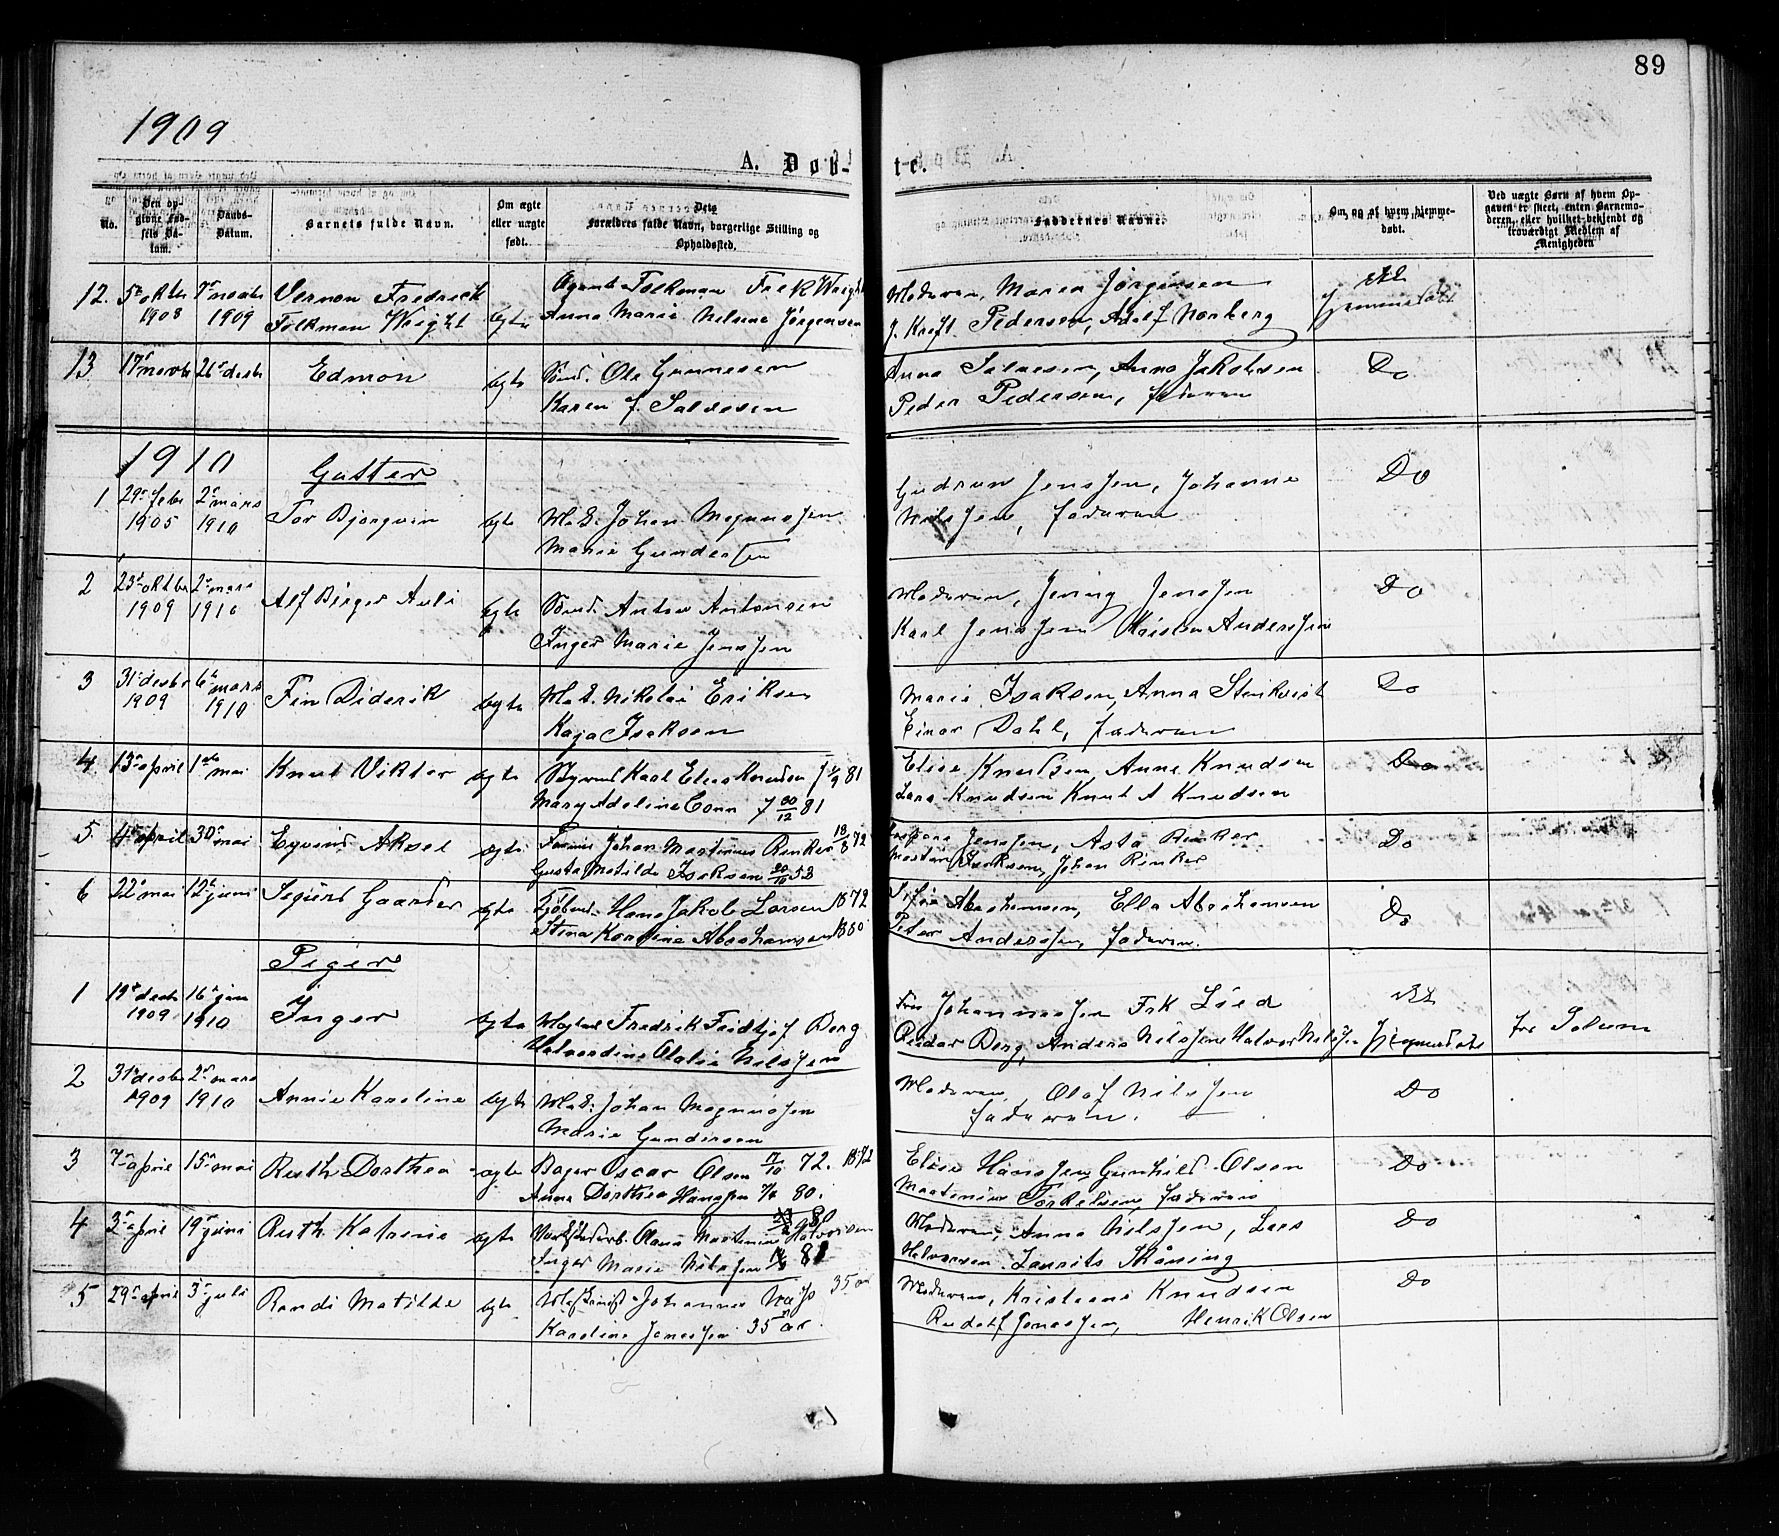 89
1909
A. Døb-
te.
No.
Den op-
givne Fød-
sels Da-
tum.
Daabs-
Datum.
Barnets fulde Navn.
Om ægte
eller uægte
født.
Dets
Forældres fulde Navn, borgerlige Stilling og
Opholdssted.
Faddernes Navne.
Om og af hvem hjemme-
døbt.
Ved uægte Børn af hvem Op-
gaven er skeet, enten Barnemo-
deren, eller hvilket bekjendt og
troværdigt Medlem af
Menigheden
12. 5te oktbr
1908
1909
Vernon Fredrick
Folkman Wright
ægte
Agent Folkman Fre K Wright
Anna Marie Nilsine Jørgensen
Moderen, Maren Jørgensen
J. Kraft Pedersen, Adolf Norberg
Ikke
hjemmedøbt
13. 17n novbr
26n desbr
Edmon
ægte
Ole Gunnesen
Karen J. Salvesen
Anna Salvesen, Anna Jakobsen
Peder Pedersen, faderen
Do
1910
Gutter
1 29n febr
1905
2n mars
1910
Tor Bjorgvin
ægte
Mat. Johan Magnussen
Marie Gundersen
Gudrun Jenssen, Johanne
Nilssen, faderen
Do
2 23n oktbr
1909
2n mars
1910
Alf Birger Auli
ægte
Anton Antonsen
Inger Marie Jenssen
Moderen, Jenny Jenssen
Karl Jenssen Kristen Anderssen
Do
3 31n desbr
1909
6te mars
1910
Fin Diderik
ægte
Mat. Nikolai Eriksen
Kaja Isaksen
Marie Isaksen, Anna Stenkvist
Einar Dahl, faderen
Do
4 13n april
1ste mai
Knut Viktor
ægte
Styrmd Karl Elias Knudsen f 1/9 81
Mary Adeline Conn f 30/12 81
Elise Knudsen, Anne Knudsen
Lars Knudsen Knut A Knudsen
Do
5 4de april
30n mai
Eyvind Aksel
ægte
Johan Martinius Renker 18/8 72
Gusta Matilde Isaksen
Jenssen, Asta Renker
Martin Isaksen, Johan Renker
Do
6 22n mai
12te juni
Sigurd Gaarder
ægte
Hans Jakob Larsen 1872
Stina Karoline Abrahamsen 1880
Sofie Abrahamsen, Ella Abrahamsen
Peter Anderssen, faderen.
Do
Piger
1 19de desbr
1909
16n jan
1910
Inger
ægte
Fredrik Fridtjof Berg
Halvordine Olalie Nilssen
Fru Johannessen Frk Lied
Reidar Berg, Anders Nilssen Halvor Nilssen
Ikke
hjemmedøbt
fra Solum
2 31n desbr
1909
2n mars
1910
Annie Karoline
ægte
Mat. Johan Magnussen
Marie Gundersen
Moderen, Olaf Nilssen
faderen.
Do
3 7n april
15n mai
Ruth Dorthea
ægte
Bager Oscar Olsen 17/10 72. 1872
Anna Dorthea Hanssen 80.
Elise Hanssen, Gunhild Olsen
Martinius Torkelsen, faderen
Do
4 3n april
19n juni
Ruth Katrine
ægte
Verkstedarb. Olaus Martinius Halvorsen 80
Inger Marie Nilssen 81
Moderen, Anna Nilssen, Lars
Halvorsen Laurits Skåning
Do
5 29n april
3n juli
Randi Matilde
ægte
Johannes 35 år
Karoline Jonassen 35 år.
Moderen, Kristiane Knudsen
Rudolf Jonassen, Henrik Olsen
Do